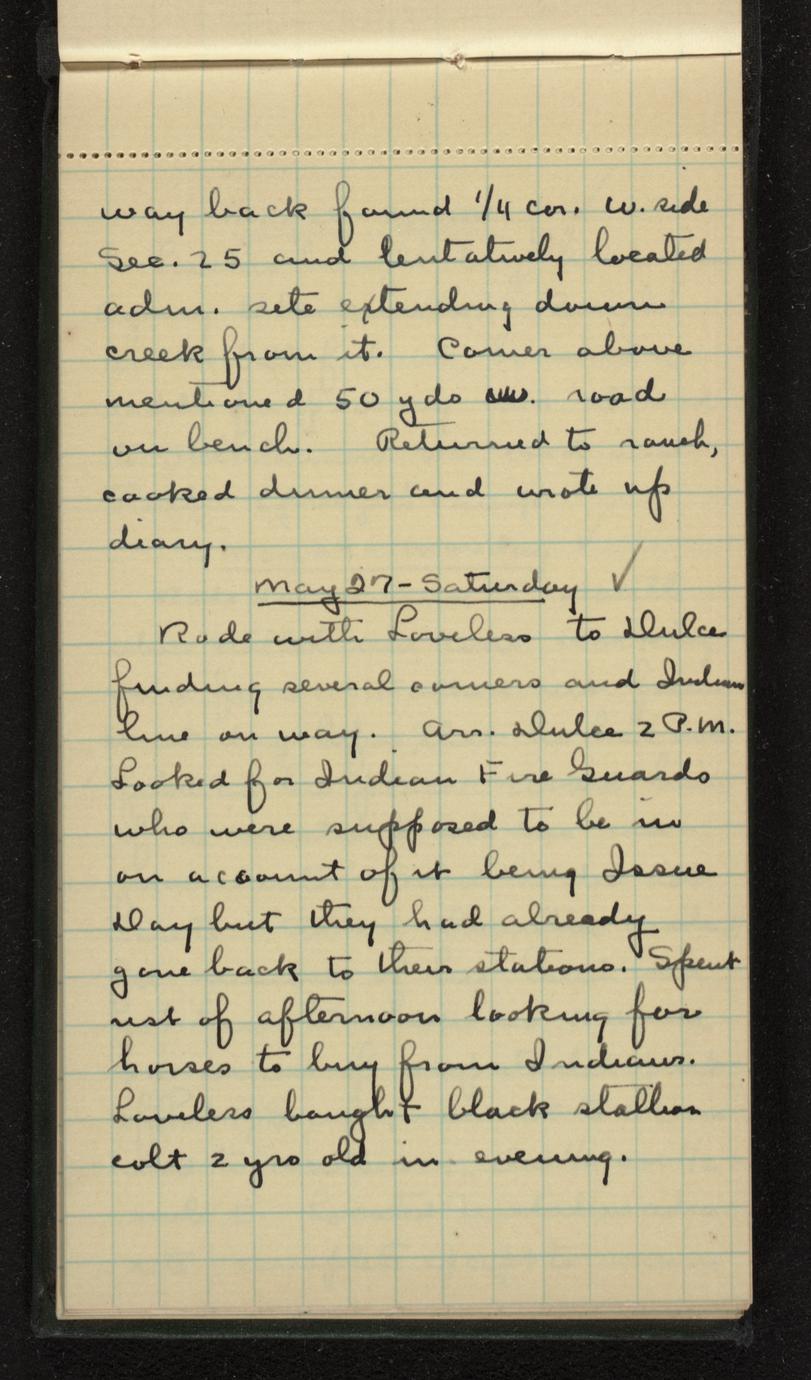 way back found 1/4 cor. W. side
Sec. 25 and tentatively located
adm. site extending down
creek from it. Corner above
mentioned 50 yds road
on bench. Returned to ranch,
cooked dinner and wrote up
diary.
May 27 - Saturday ✓
Rode with Loveless to Dulce
finding several corners and Indian
line on way. Arr. Dulce 2 P.M.
Looked for Indian Fire Guards
who were supposed to be in
on account of it being Issue
Day but they had already
gone back to their stations. Spent
rest of afternoon looking for
horses to buy from Indians.
Loveless bought black stallion
colt 2 yrs old in evening.